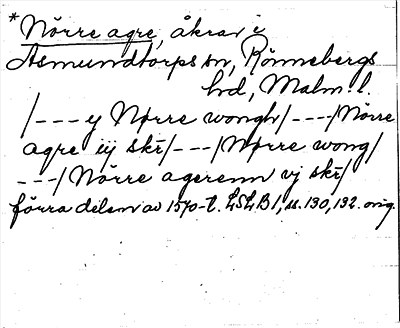 *Nörre agre, åkrar i
Asmundtorps sn, Rönnebergs
hd, Malm. l.
/--- y Nørre wongh/----/Nörre
agre iij skr/---/Nørre wong/
---/Nörre agerenn vj skr/
förra delen av 1570-t. LSLB 1, s. 130, 132. orig.